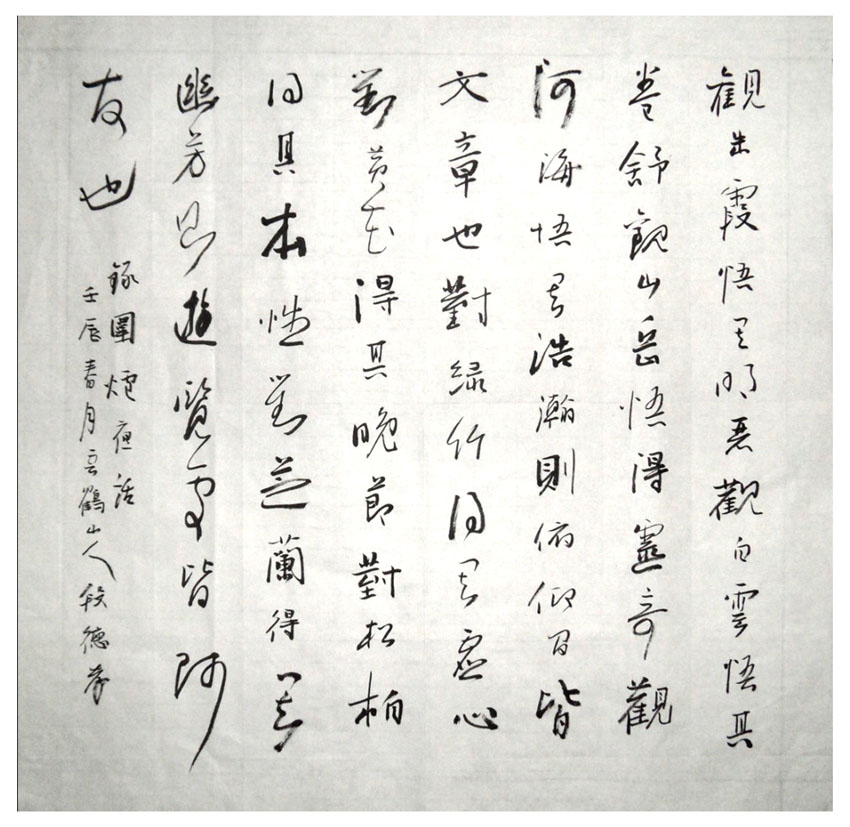 觀霞悟其明觀白雲悟其
卷舒觀山岳悟得靈奇觀
河海悟其浩瀚則俯仰間皆
文章也對緑竹得其虚心
對黄花得其晚節對松柏
得其本性對芝蘭得其
幽芳則遊覽處皆師
友也
錄圍爐夜話
壬辰春月云鶴山人段德